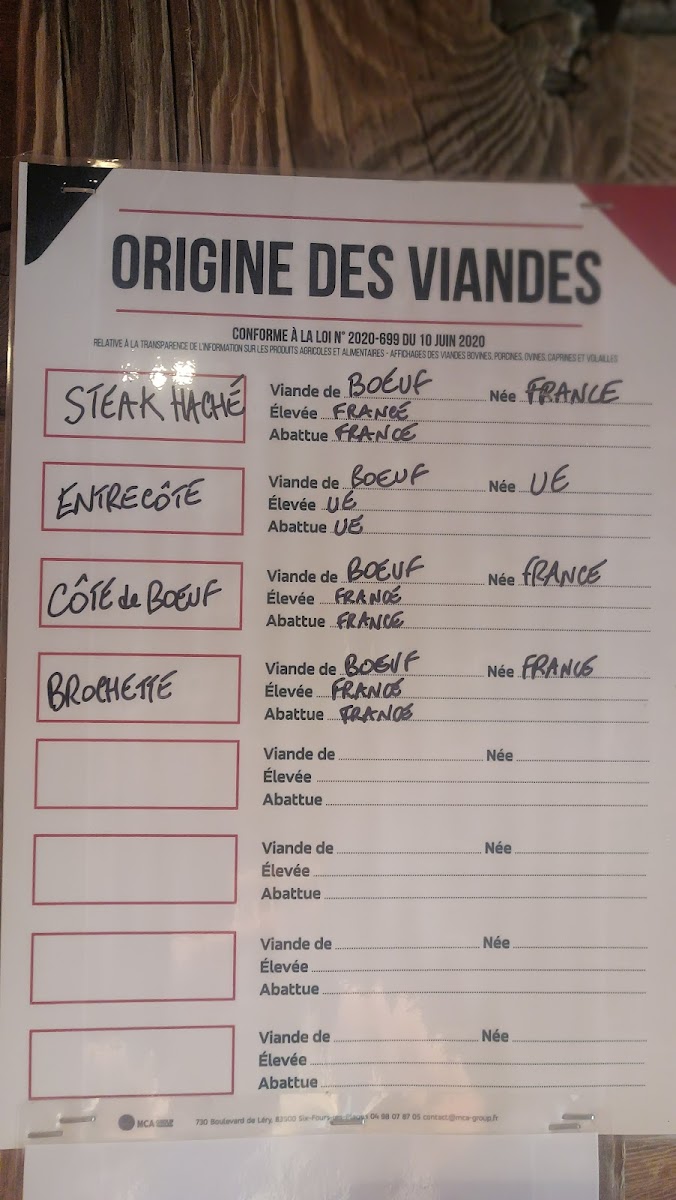 ORIGINE DES VIANDES
CONFORME À LA LOI N° 2020-699 DU 10 JUIN 2020
RELATIVE À LA TRANSPARENCE DE L'INFORMATION SUR LES PRODUITS AGRICOLES ET ALIMENTAIRES - AFFICHAGES DES VIANDES BOVINES, PORCINES, OVINES, CAPRINES ET VOLAILLES
STEAK HACHÉ
Viande de BOEUF Née FRANCE
Élevée FRANCE
Abattue FRANCE
ENTRECÔTE
Viande de BOEUF Née UE
Élevée UE
Abattue UE
CÔTE de BOEUF
Viande de BOEUF Née FRANCE
Élevée FRANCE
Abattue FRANCE
BROCHETTE
Viande de BOEUF Née FRANCE
Élevée FRANCE
Abattue FRANCE
Viande de Née
Élevée
Abattue
Viande de Née
Élevée
Abattue
Viande de Née
Élevée
Abattue
Viande de Née
Élevée
Abattue
MCA 730 Boulevard de Léry, 83500 Six-Fours-les-Plages 04 98 07 87 05 contact@mca-group.fr